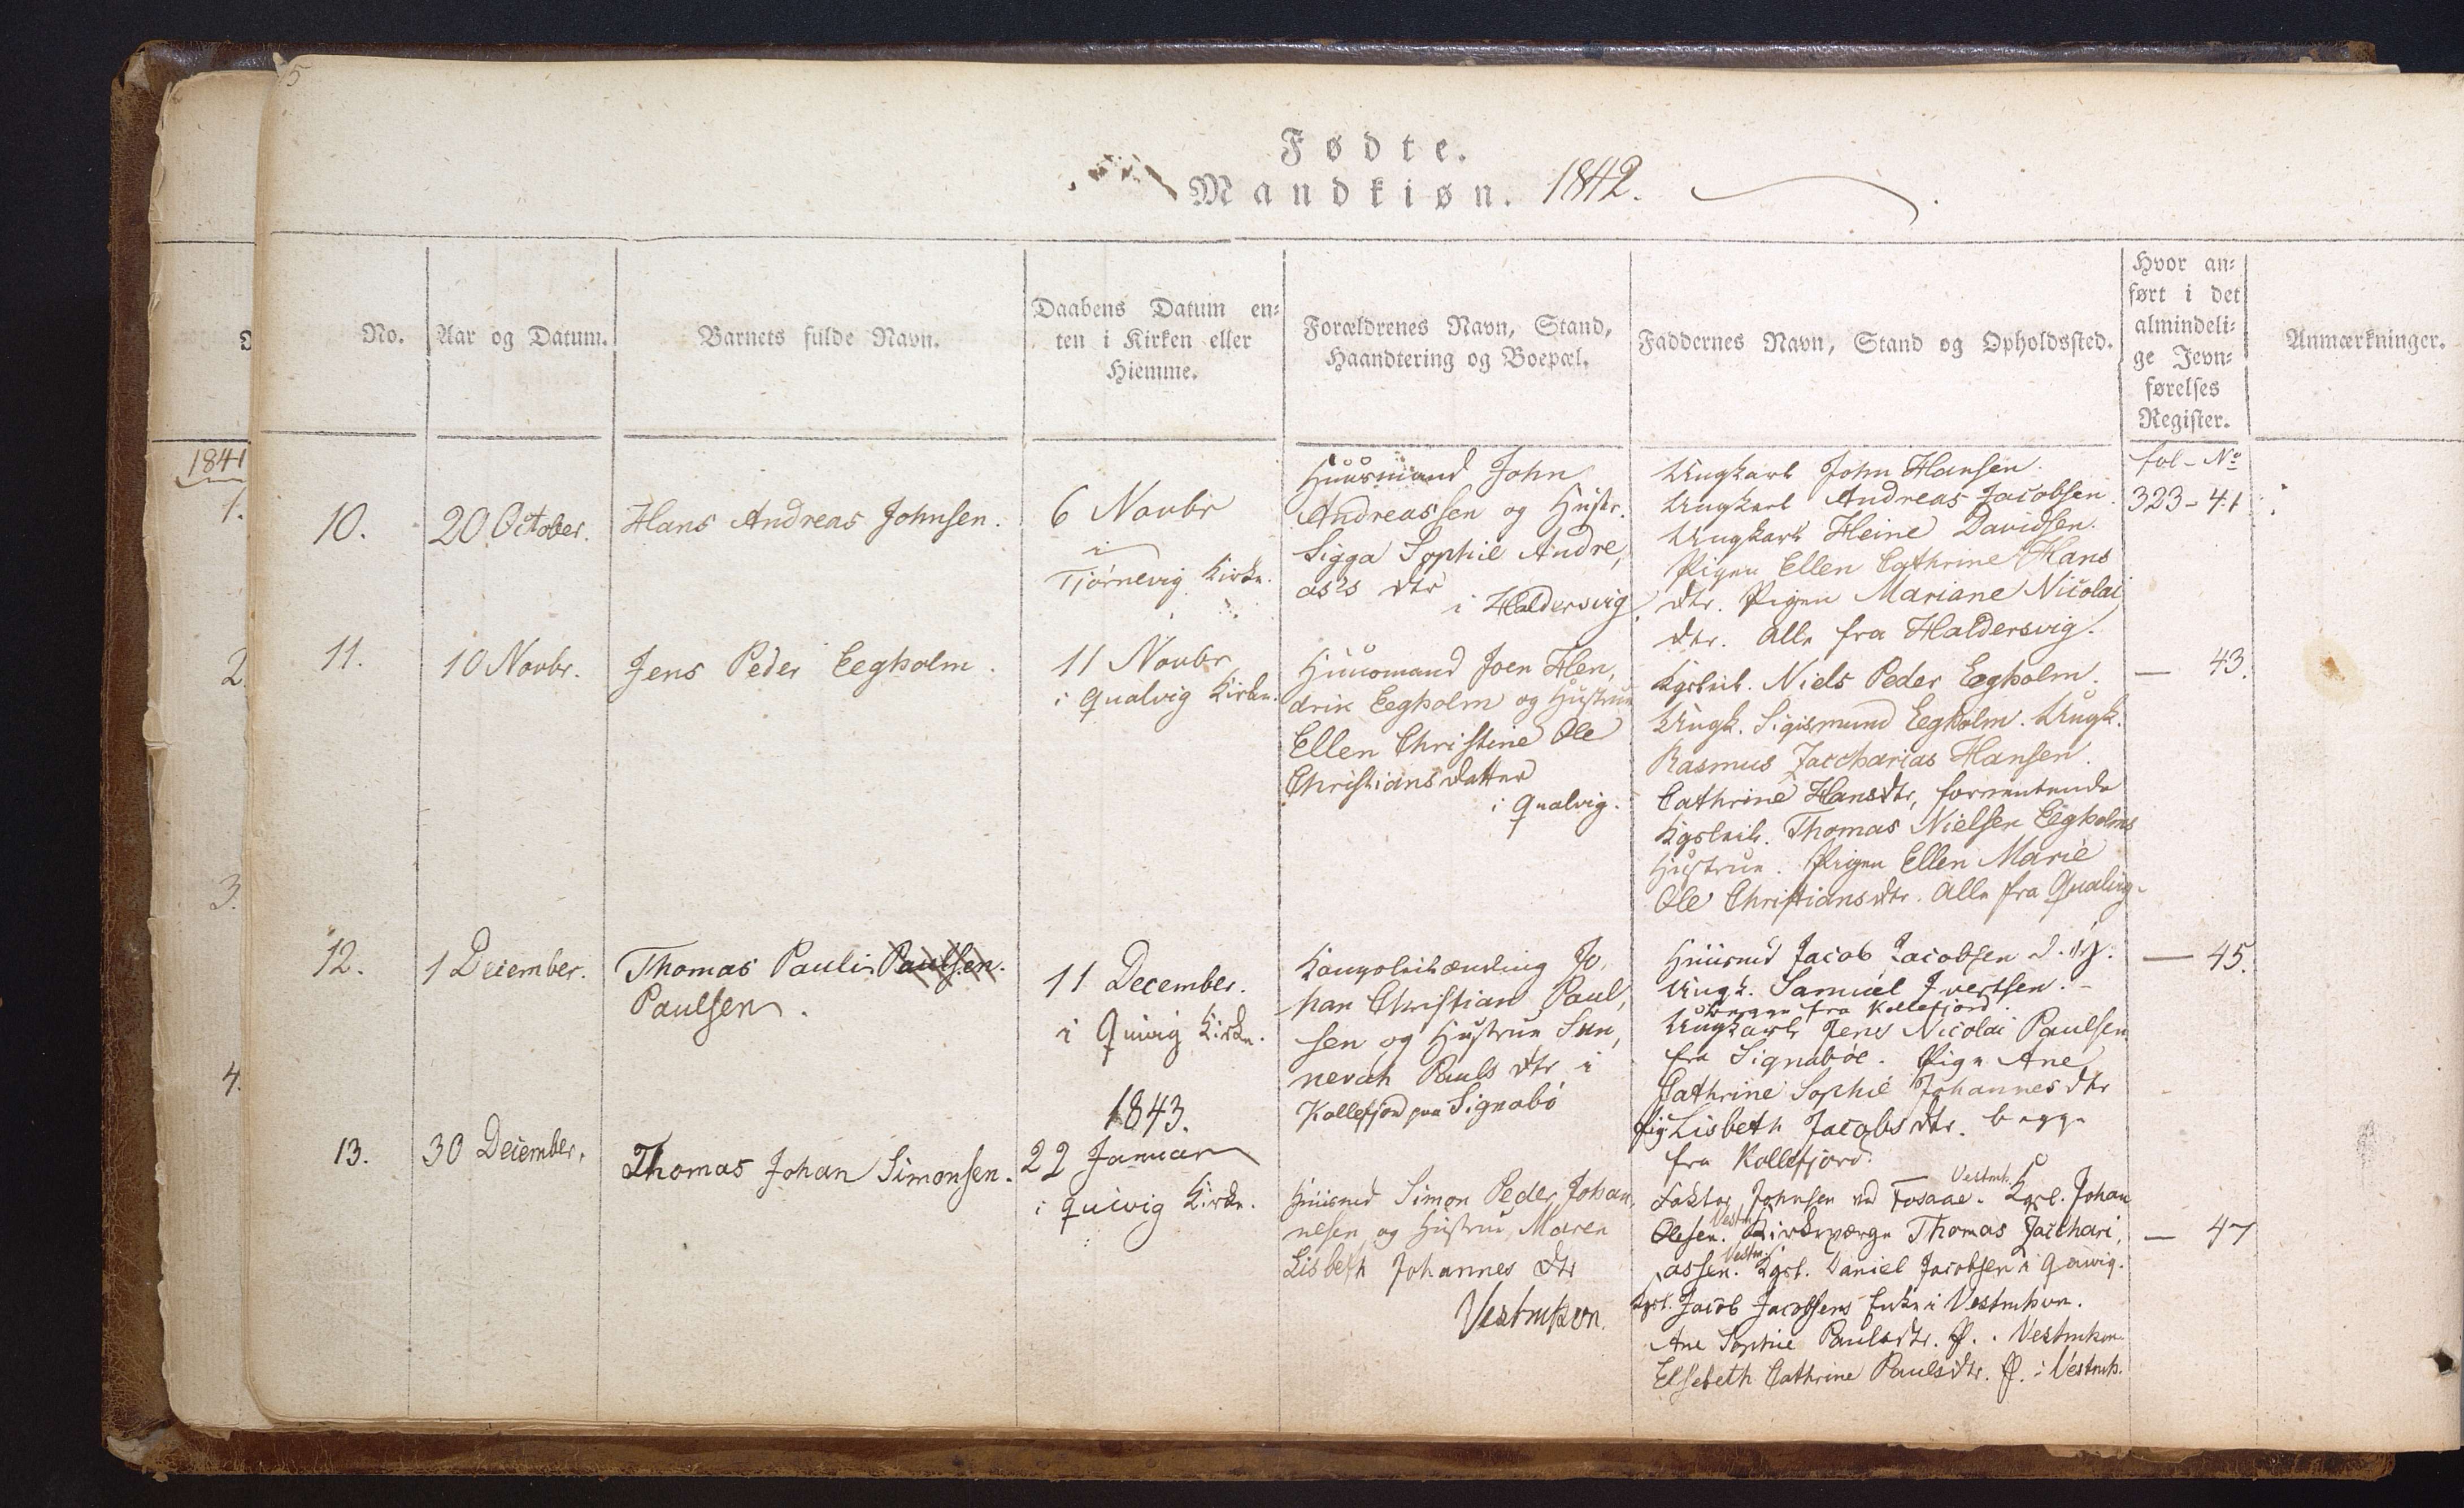 5
Fødte.
Mandkiøn. 1842.
No.
Aar og Datum.
Barnets fulde Navn.
Daabens Datum en-
ten i Kirken eller
Hiemme.
Forældrenes Navn, Stand,
Haandtering og Boepæl.
Faddernes Navn, Stand og Opholdssted.
Hvor an-
ført i det
almindeli-
ge Jevn-
førelses
Register.
Anmærkninger.
1841
1.
2.
3.
4.
10.
20 October.
Hans Andreas Johnsen.
6 Novbr
i
Tjörnevig Kirke.
Huusmand John
Andreassen og Hustr.
Sigga Sophie Andre,
as's dtr
i Haldersvig
Ungkarl John Hansen.
Ungkarl Andreas Jacobsen.
Ungkarl Heine Davidsen.
Pigen Ellen Cathrine Hans
dtr. Pigen Mariane Nicolai
dtr. Alle fra Haldersvig.
fol - No
323 - 41
11.
10 Novbr.
Jens Peder Eegholm.
11 Novbr
i Qualvig Kirke.
Huusmand Joen Hen,
drik Eegholm og Hustrue
Ellen Christine Ole
Christiansdatter
i Qualvig.
Kgsleil. Niels Peder Eegholm.
Ungk. Sigismund Eegholm. Ungk.
Rasmus Zaccharias Hansen.
Cathrine Hansdtr, forrentende
Kgsleil. Thomas Nielsen Eegholms
Hustrue. Pigen Ellen Marie
Ole Christiansdtr. Alle fra Qualvig.
— 43.
12.
1 December.
Thomas Pauli Paulsen.
Paulsen.
11 December.
i Quivig Kirke.
Kongsleilænding Jo,
han Christian Paul,
sen og Hustrue Sun,
nevah Pauls dtr i
Kollefjord paa Signabö
Huusmd Jacob Jacobsen d. y.
Ungk. Samuel Ivertsen.
begge fra Kollefjord.
Ungkarl Jens Nicolai Paulsen
fra Signaböe. Pige Ane
Cathrine Sophie Johannesdtr
Pig Lisbeth Jacobsdtr. begge
fra Kollefjord.
— 45.
13.
30 December.
Thomas Johan Simonsen.
1843.
22 Januar
i Quivig Kirke.
Huusmd Simon Peder Johan,
nesen og Hustrue Maren
Lisbeth Johannes dtr
Vestmhvn.
Vestmh.
Faktor Johnsen ved Fosaae. Kgsl. Johan
Olesen. Kirkeværge Thomas Zacchari,
assen. Kgsl. Daniel Jacobsen i Qvivig.
Kgsl. Jacob Jacobsens Enke i Vestmhvn.
Ane Sophie Paulsdtr. P. i Vestmhvn.
Elsebeth Cathrine Paulsdtr. P. i Vestmh.
— 47